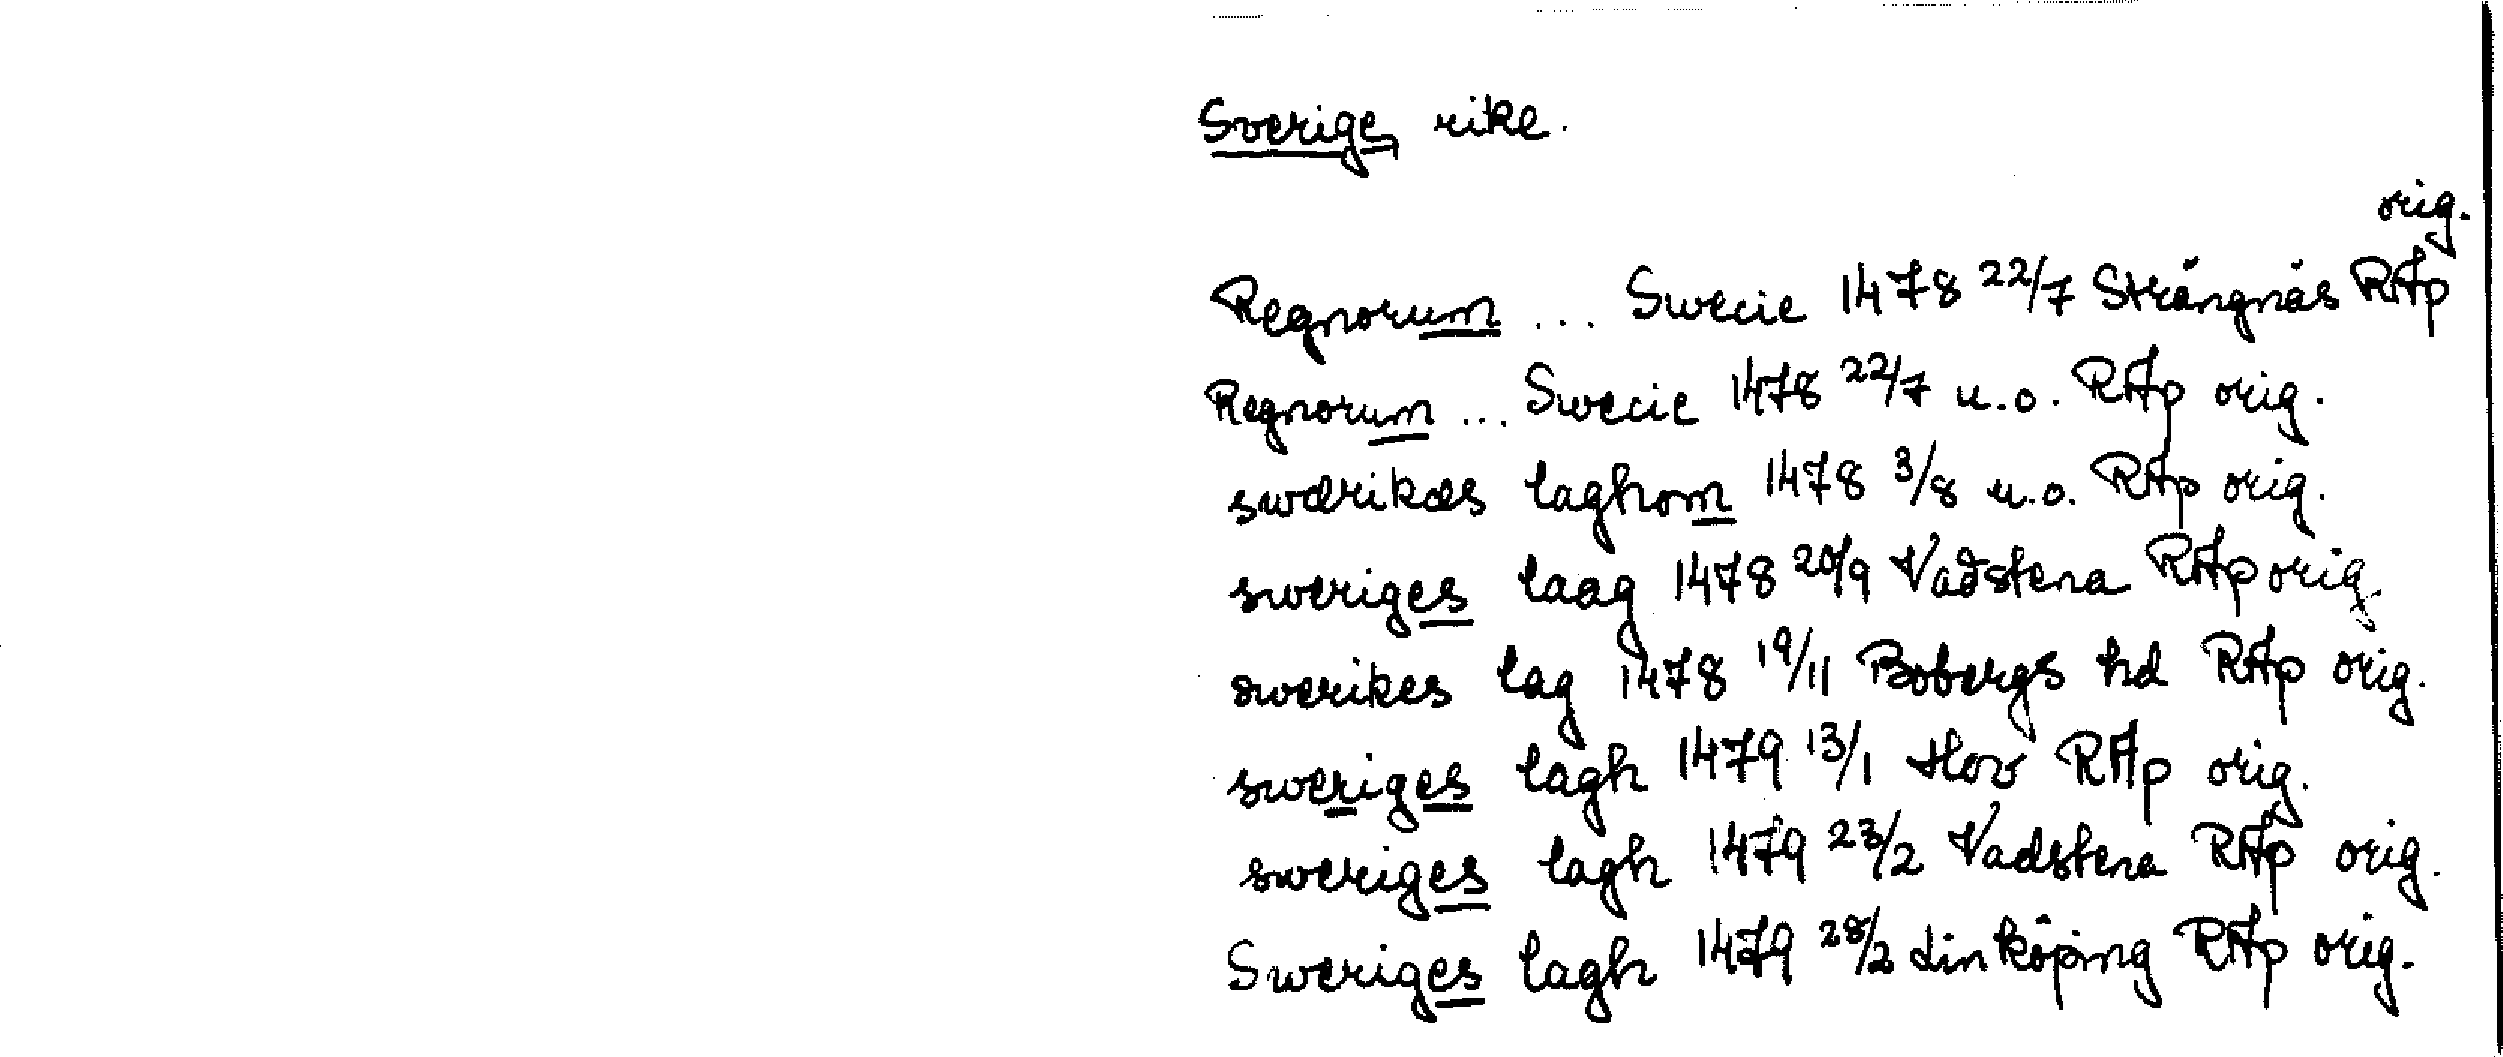 Sverige, rike.
orig.
Regnorum ... Swecie 1478 22/7 Strängnäs RAp
Regnorum ... Swecie 1478 22/7 u.o. RAp orig.
swærikæs laghom 1478 3/8 u.o. RAp orig.
sweriges laag 1478 20/9 Vadstena RAp orig.
swerikes lag 1478 19/11 Bobergs hd RAp orig.
sweriges lagh 1479 13/1 Hov RAp orig.
sweriges lagh 1479 23/2 Vadstena RAp orig.
Sweriges lagh 1479 28/2 Linköping RAp orig.